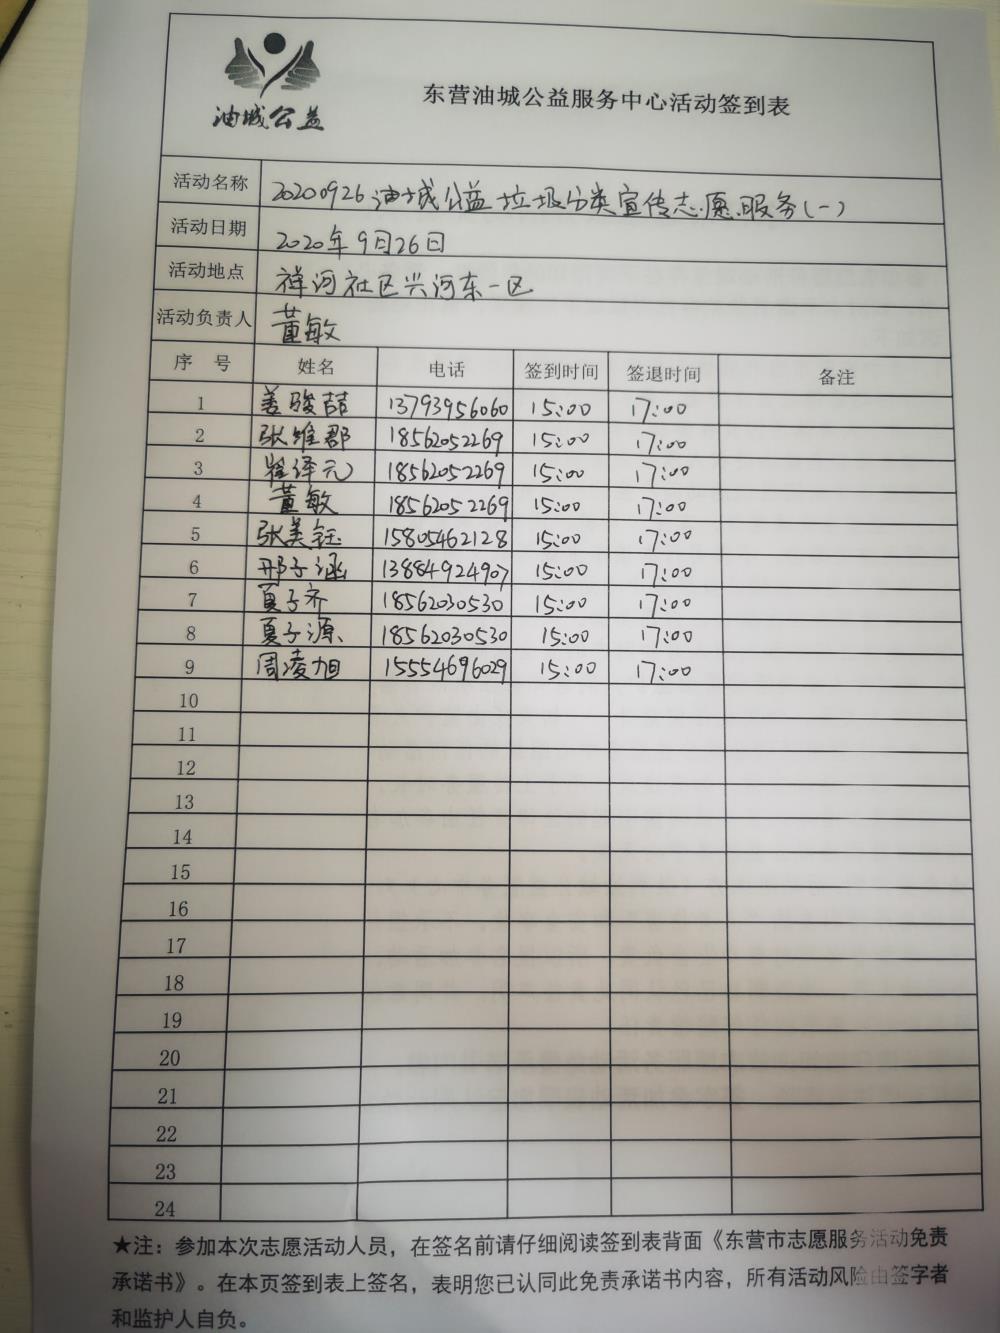 油城公益
东营油城公益服务中心活动签到表
活动名称 20200926油城公益垃圾分类宣传志愿服务(一)
活动日期 2020年9月26日
活动地点 祥河社区兴河东一区
活动负责人 董敏
序 号 姓名 电话 签到时间 签退时间 备注
1 姜骏喆 13793956060 15:00 17:00
2 张维郡 18562052269 15:00 17:00
3 崔译元 18562052269 15:00 17:00
4 董敏 18562052269 15:00 17:00
5 张美钰 15805462128 15:00 17:00
6 邢子涵 13884924907 15:00 17:00
7 夏子齐 18562030530 15:00 17:00
8 夏子源 18562030530 15:00 17:00
9 周凌旭 15554696029 15:00 17:00
10
11
12
13
14
15
16
17
18
19
20
21
22
23
24
★注：参加本次志愿活动人员，在签名前请仔细阅读签到表背面《东营市志愿服务活动免责
承诺书》。在本页签到表上签名，表明您已认同此免责承诺书内容，所有活动风险由签字者
和监护人自负。